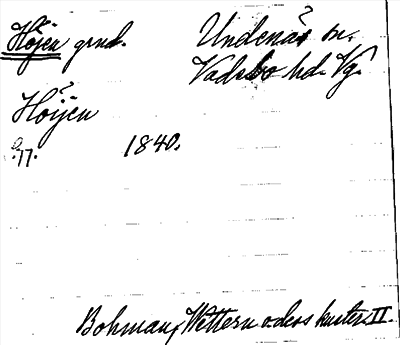 Höjen grnd. Undenäs sn.
Vadsbo hd. Vg.
Höijen
s. 77. 1840.
Bohman, Wettern o. dess kuster II.